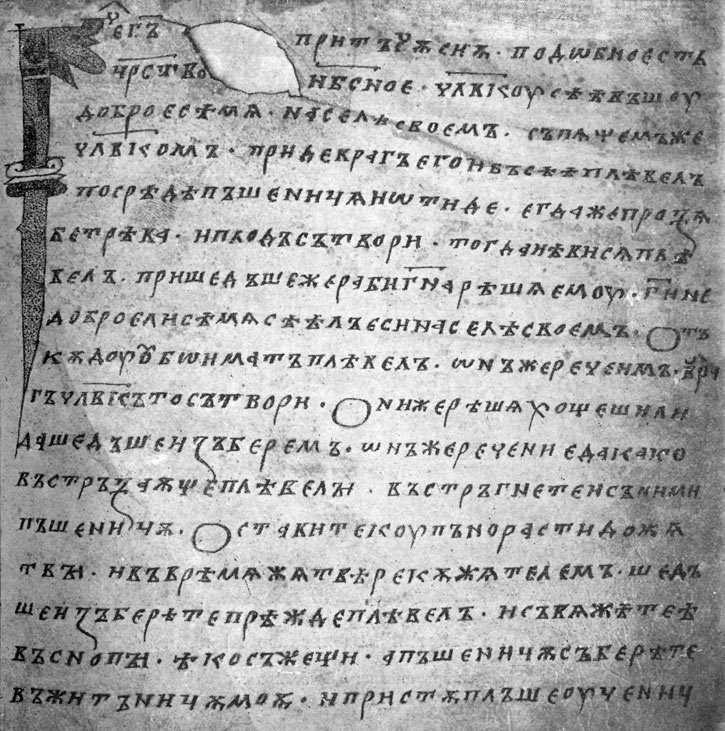 рⷱ҇егъ притъчѫсеиѫ · подобноестъ
чрⷭ҇тво нб҃сное · ч҃лвкоусѣѣвъшоу
доброесѣмѧ · населѣсвоемъ · съпѧщемъже
ч҃лвкомъ · придеврагъегоивьсѣѣплѣвелъ
посрѣдѣпъшеницѧиѡтиде · егдажепрозѧ
бетрѣва · иплодъсътвори · тогдаꙗвисѧплѣ
велъ · пришедъшежерабиг҃нарѣшѧемоу · г҃ине
доброелисѣмѧсѣѣлъесинаселѣсвоемъ · Отъ
кѫдоуꙋбѡиматъплѣвелъ · ѡнъжеречеимъ · вра
гъч҃лвкъсътосътвори · Онижерѣшѧхощешили
дашедъшеизъберемъ · ѡнъжеречениедакако
въстръзаѫщеплѣвелꙑ · въстръгнетеисъними
пъшеницѧ · Оставитекоупънорастидожѧ
твꙑ · ивъврѣмѧжѧтвѣрекѫжѧтелемъ · шедъ
шеизъберѣтепрѣждеплѣвелъ · исъвѧжѣтеѣ
въснопꙑ · ѣкосъжещи · апъшеницѫсъберѣте
въжитъницѫмоѭ · ипристѫплъшеоученици